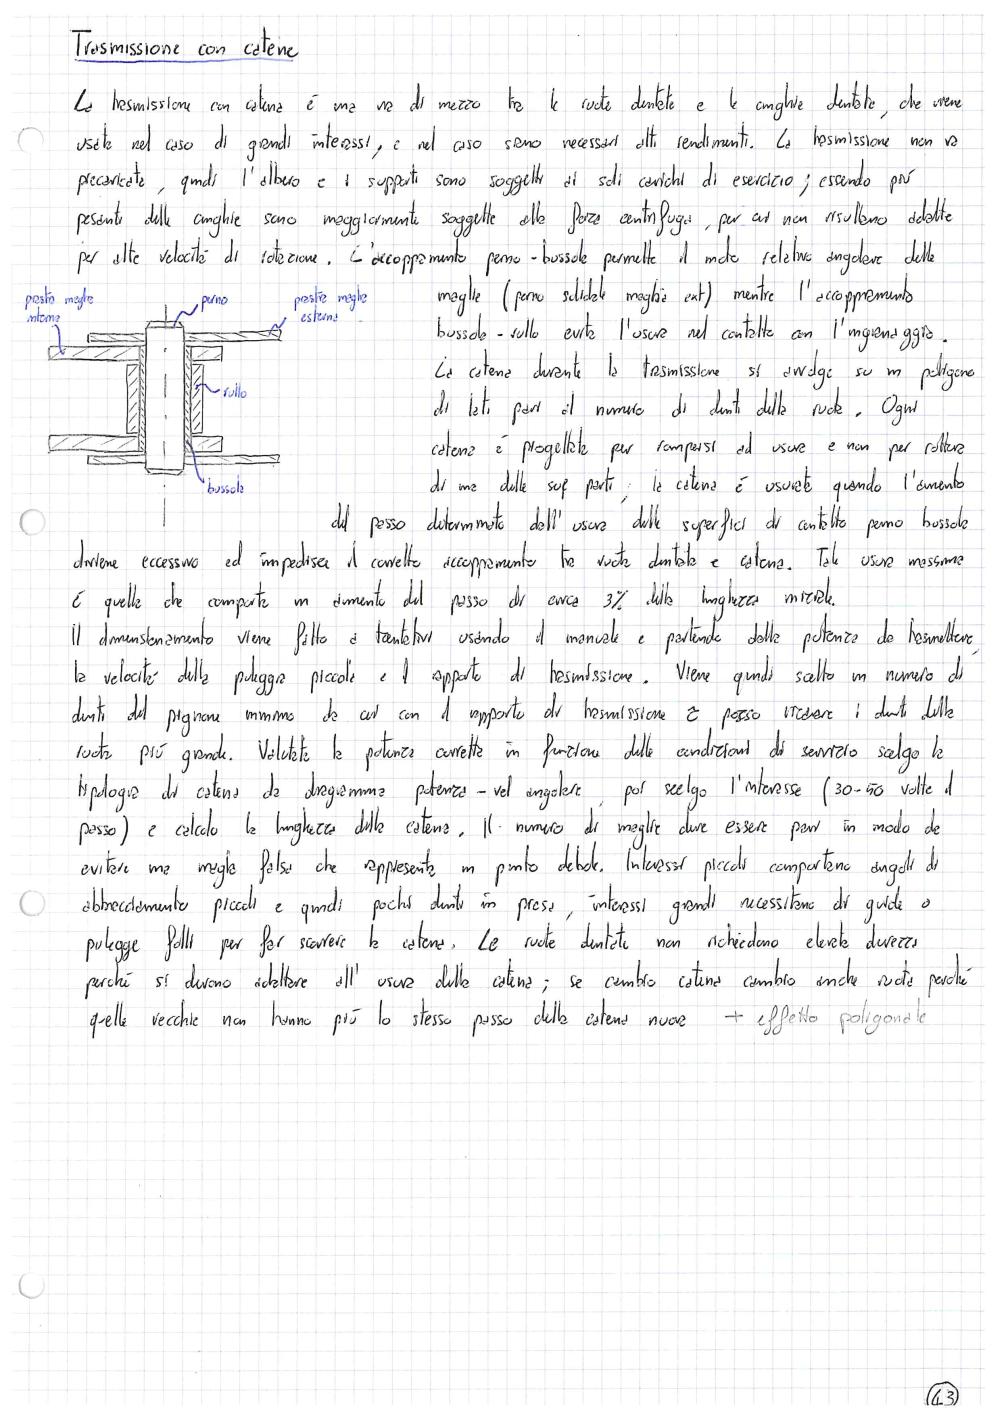 Trasmissione con catene
La trasmissione con catena è una via di mezzo tra le ruote dentate e le cinghie dentate, che viene
usata nel caso di grandi interassi, e nel caso siano necessari alti rendimenti. La trasmissione non va
precaricata, quindi l'albero e i supporti sono soggetti ai soli carichi di esercizio; essendo più
pesanti delle cinghie sono maggiormente soggette alla forza centrifuga, per cui non risultano adatte
per alte velocità di rotazione. L'accoppiamento perno-bussola permette il moto relativo angolare delle
maglie (perno solidale maglia ext) mentre l'accoppiamento
bussola-rullo evita l'usura nel contatto con l'ingranaggio.
La catena durante la trasmissione si avvolge su un poligono
di lati pari al numero di denti della ruota. Ogni
catena è progettata per rompersi ad usura e non per rottura
di una delle sue parti; la catena è usurata quando l'aumento
del passo determinato dall'usura delle superfici di contatto perno bussola
diviene eccessivo ed impedisce il corretto accoppiamento tra ruota dentata e catena. Tale usura massima
è quella che comporta un aumento del passo di circa 3% della lunghezza iniziale.
Il dimensionamento viene fatto a tentativi usando il manuale e partendo dalla potenza da trasmettere,
la velocità della puleggia piccola e il rapporto di trasmissione. Viene quindi scelto un numero di
denti del pignone minimo da cui con il rapporto di trasmissione τ posso ricavare i denti della
ruota più grande. Valutata la potenza corretta in funzione delle condizioni di servizio scelgo la
tipologia di catena da diagramma potenza-vel angolare, poi scelgo l'interasse (30-50 volte il
passo) e calcolo la lunghezza della catena. Il numero di maglie deve essere pari in modo da
evitare una maglia falsa che rappresenta un punto debole. Interassi piccoli comportano angoli di
abbracciamento piccoli e quindi pochi denti in presa, interassi grandi necessitano di guide o
pulegge folli per far scorrere la catena. Le ruote dentate non richiedono elevata durezza
perché si devono adattare all'usura della catena; se cambio catena cambio anche ruota perché
quelle vecchie non hanno più lo stesso passo della catena nuova + effetto poligonale
piastra maglia
interna
perno
piastra maglia
esterna
rullo
bussola
43